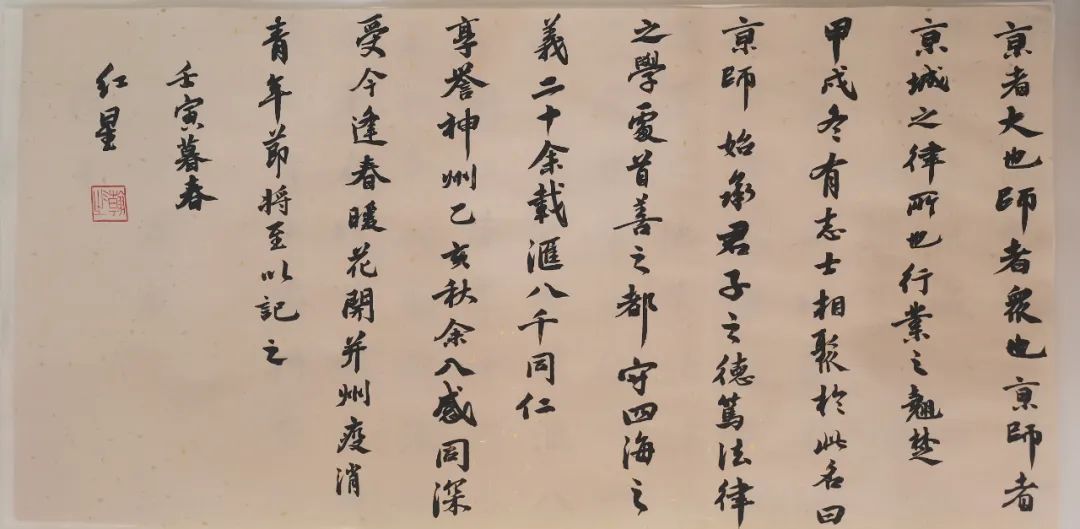 京者大也師者眾也京師者
京城之律所也行業之翹楚
甲戌冬有志士相聚於此名曰
京師 始承君子之德篤法律
之學處首善之都守四海之
義二十余載滙八千同仁
享誉神州乙亥秋余入感同深
受今逢春暖花開并州疫消
青年節将至以記之
壬寅暮春
红星